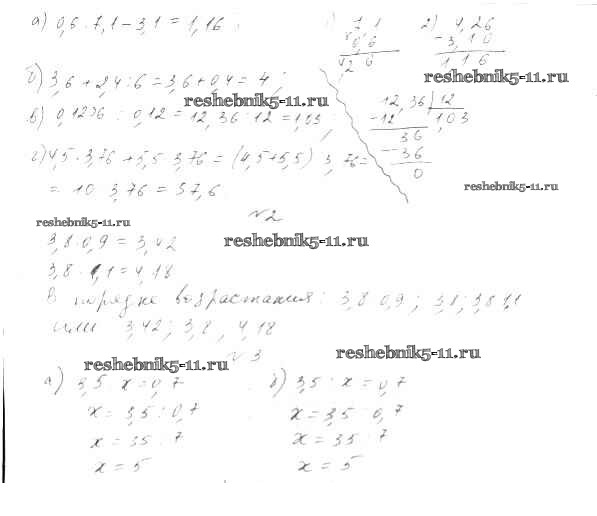 а) 0,6 · 7,1 - 3,1 = 1,16 ;
1) 7,1
0,6
4,26
2) 4,26
- 3,10
1,16
reshebnik5-11.ru
б) 3,6 + 2,4 : 6 = 3,6 + 0,4 = 4 ;
reshebnik5-11.ru
в) 0,1236 : 0,12 = 12,36 : 12 = 1,03 ;
12,36 | 12
- 12 1,03
36
- 36
0
г) 4,5 · 3,76 + 5,5 · 3,76 = (4,5 + 5,5) · 3,76 =
= 10 · 3,76 = 37,6
reshebnik5-11.ru
№2
reshebnik5-11.ru
3,8 · 0,9 = 3,42
reshebnik5-11.ru
3,8 · 1,1 = 4,18
В порядке возрастания: 3,8 · 0,9 ; 3,8 ; 3,8 · 1,1
или 3,42 ; 3,8 , 4,18
№3
reshebnik5-11.ru
reshebnik5-11.ru
а) 3,5 : x = 0,7
x = 3,5 : 0,7
x = 35 : 7
x = 5
б) 3,5 : x = 0,7
x = 3,5 : 0,7
x = 35 : 7
x = 5